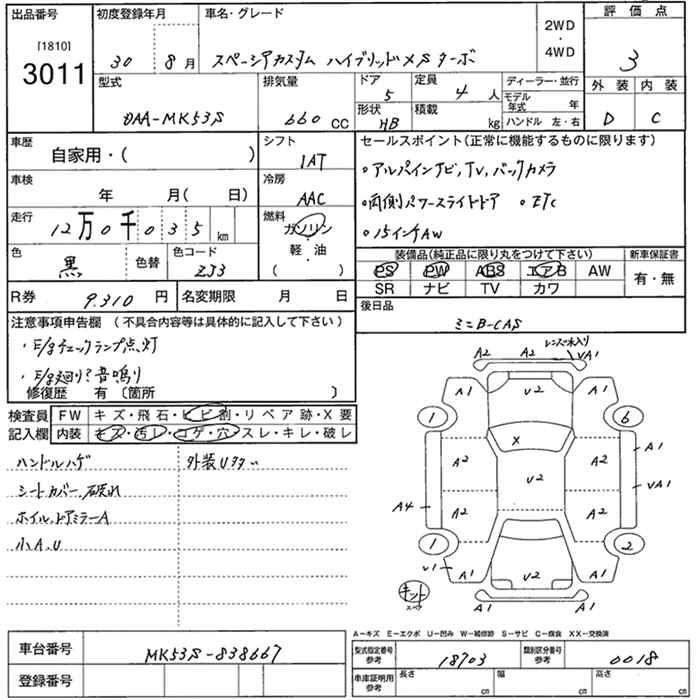 出品番号
[1810]
3011
初度登録年月
30 8月
車名・グレード
スペーシアカスタム ハイブリッドXS ターボ
2WD
・
4WD
評価点
3
外装 内装
D C
型式
DAA-MK53S
排気量
660 CC
ドア
5
形状
HB
定員
4 人
積載
kg
ディーラー・並行
モデル年式 年
ハンドル 左・右
車歴
自家用・( )
シフト
IAT
車検
年 月( 日)
冷房
AAC
走行
12万0千035km
燃料
ガソリン
軽・油
( )
色
黒
色替
色コード
ZJ3
R券 9.310 円
名変期限 月 日
セールスポイント(正常に機能するものに限ります)
◦アルパインナビ,TV,バックカメラ
◦両側パワースライドドア ◦ETC
◦15インチAW
装備品(純正品に限り丸をつけて下さい)
PS PW ABS エアB AW
SR ナビ TV カワ
新車保証書
有・無
後日品
ミニB-CAS
注意事項申告欄 (不具合内容等は具体的に記入して下さい)
・E/gチェックランプ点灯
・E/g廻り?音鳴り
修復歴 有〔箇所 〕
検査員記入欄
FW キズ・飛石・ヒビ割・リペア跡・X要
内装 キズ・汚レ・コゲ・穴・スレ・キレ・破レ
ハンドルハゲ
シートカバー、破れ
ホイル、ドアミラーA
小A.U
レンズ水入り
A2 A2 VA1
A1 U2 A1
1 6
X
A2 A2 A1
U2
VA1
A4 A2 A2
1 2
V1 A1 U2 A1
キット
スペア
A1 A1
A-キズ E-エクボ U-凹み W-補修跡 S-サビ C-腐食 XX-交換済
車台番号 MK53S-838667
登録番号
型式指定番号
参考
18703
類別区分番号
参考
0018
車庫証明用
参考
長さ cm
幅 cm
高さ cm